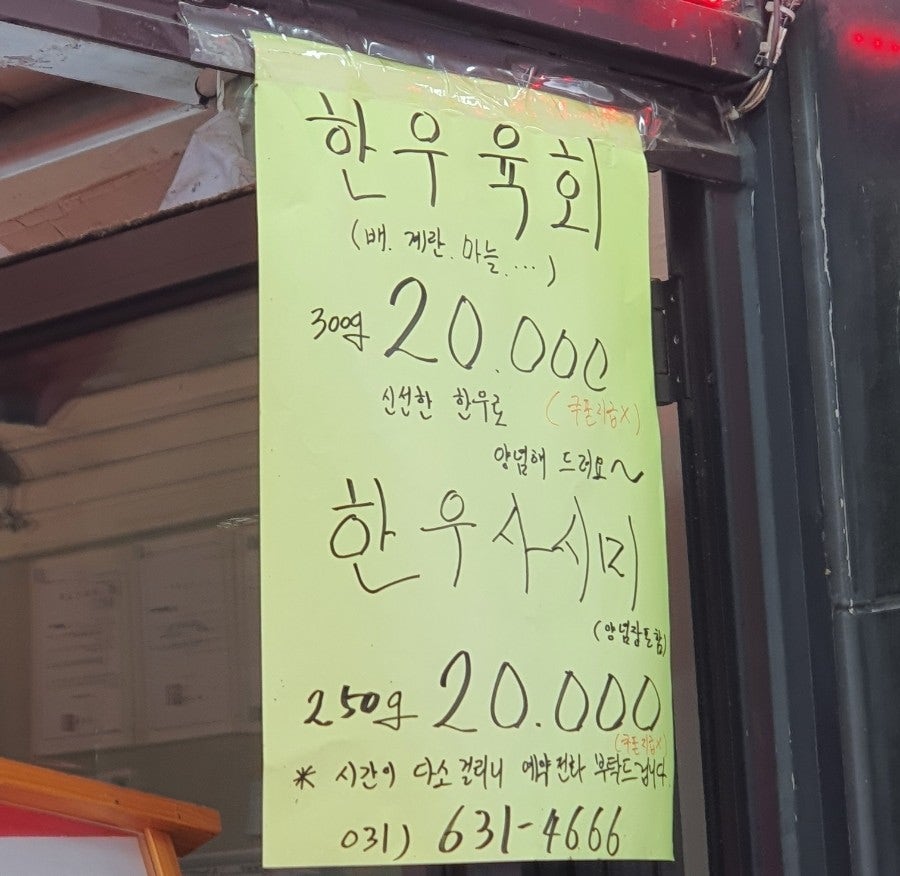 한우 육회
(배. 계란. 마늘. ...)
300g 20.000
신선한 한우로 (쿠폰지급X)
양념해 드려요~
한우 사시미
(양념장포함)
250g 20.000
(쿠폰지급X)
* 시간이 다소 걸리니 예약전화 부탁드립니다.
031) 631-4666